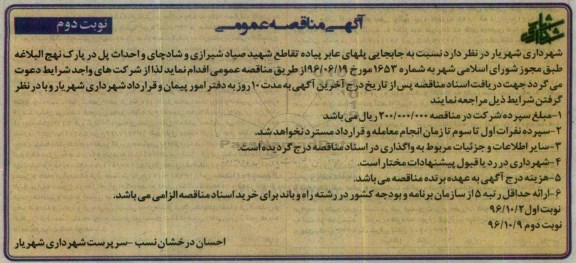 آگهی مناقصه عمومی
نوبت دوم
شهرداری شهریار در نظر دارد نسبت به جابجایی پلهای عابر پیاده تقاطع شهید صیاد شیرازی و شادچای و احداث پل در پارک نهج البلاغه
طبق مجوز شورای اسلامی شهر به شماره ۱۶۵۳ مورخ ۹۶/۰۶/۱۹ از طریق مناقصه عمومی اقدام نماید لذا از شرکت های واجد شرایط دعوت
می گردد جهت دریافت اسناد مناقصه پس از تاریخ درج آخرین آگهی به مدت ۱۰ روز به دفتر امور پیمان و قرارداد شهرداری شهریار و با در نظر
گرفتن شرایط ذیل مراجعه نمایند
۱-مبلغ سپرده شرکت در مناقصه ۲۰۰/۰۰۰/۰۰۰ ریال می باشد
۲-سپرده نفرات اول تا سوم تا زمان انجام معامله و قرارداد مسترد نخواهد شد.
۳-سایر اطلاعات و جزئیات مربوط به واگذاری در اسناد مناقصه درج گردیده است.
۴-شهرداری در رد یا قبول پیشنهادات مختار است.
۵-هزینه درج آگهی به عهده برنده مناقصه می باشد.
۶-ارائه حداقل رتبه ۵ از سازمان برنامه و بودجه کشور در رشته راه و باند برای خرید اسناد مناقصه الزامی می باشد.
نوبت اول ۹۶/۱۰/۲
نوبت دوم ۹۶/۱۰/۹
احسان درخشان نسب - سرپرست شهرداری شهریار